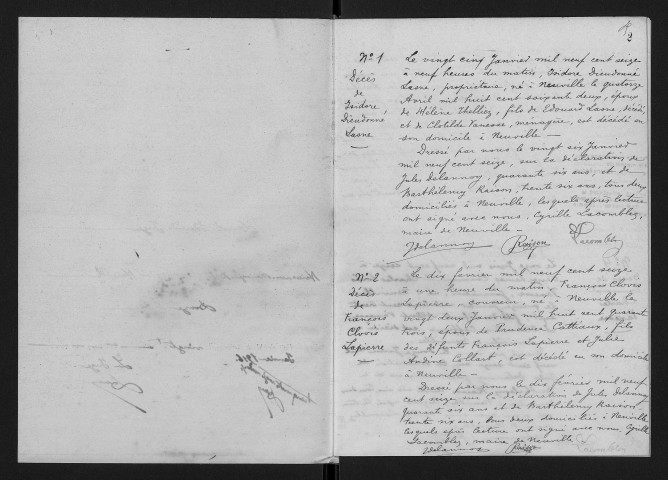 2
Nº 1
Décès
de
Isidore
Dieudonné
Lasne
Le vingt cinq Janvier mil neuf cent seize
à neuf heures du matin, Isidore Dieudonné
Lasne, propriétaire, né à Neuville le quatorze
Avril mil huit cent soixante deux, époux
de Hélène Thelliez, fils de Edouard Lasne, décédé
et de Clotilde Vanesse, ménagère, est décédé en
son domicile à Neuville —
Dressé par nous le vingt six Janvier
mil neuf cent seize, sur la déclaration de
Jules Delannoy, quarante six ans, et de
Barthélemy Raison, trente six ans, tous deux
domiciliés à Neuville, lesquels après lecture
ont signé avec nous, Cyrille Lacomblez,
maire de Neuville —
JDelannoy Raison Lacomblez
Nº 2
Décès
de
François
Clovis
Lapierre
Le dix février mil neuf cent seize
à une heure du matin, François Clovis
Lapierre, couvreur, né à Neuville le
vingt deux Janvier mil huit cent quarante
trois, époux de Prudence Cattiaux, fils
des défunts François Lapierre et Julie
Andine Collart, est décédé en son domicile
à Neuville —
Dressé par nous le dix février mil neuf
cent seize, sur la déclaration de Jules Delannoy
Quarante six ans et de Barthélemy Raison,
trente six ans, tous deux domiciliés à Neuville,
lesquels après lecture ont signé avec nous, Cyrille
Lacomblez, maire de Neuville
JDelannoy Raison Lacomblez